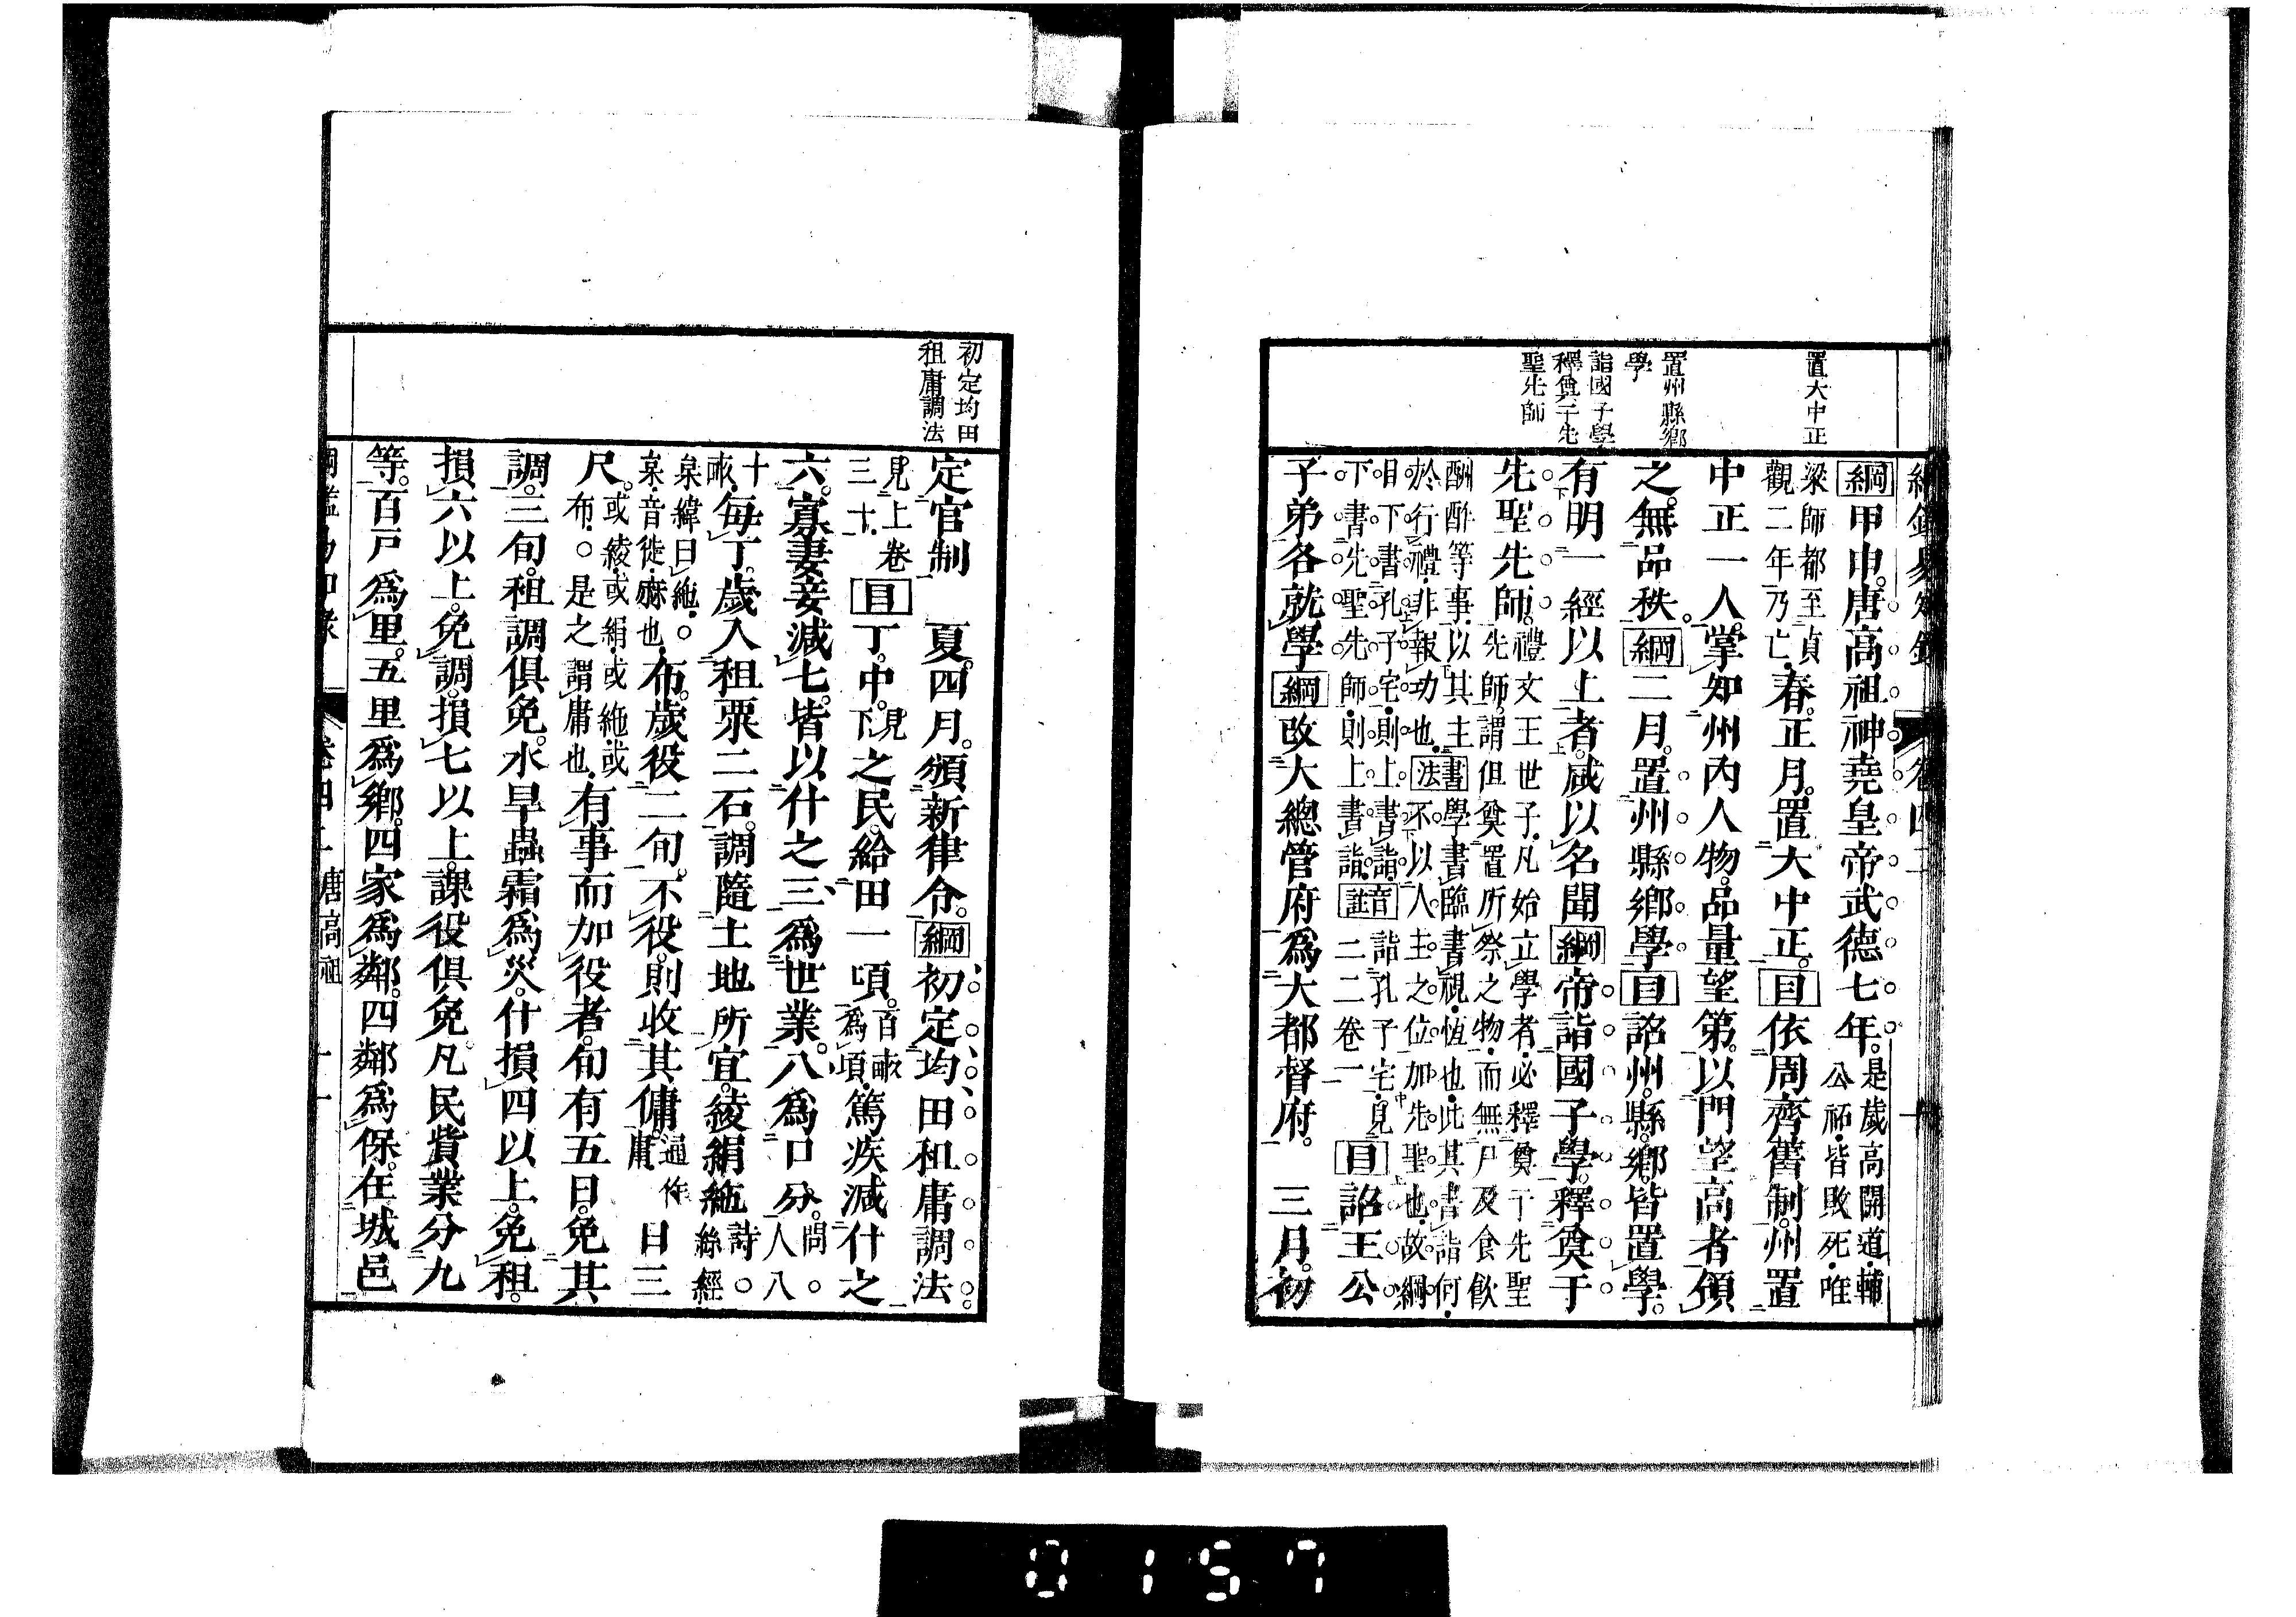 置大中正
置州縣鄉
學
詣國子學
釋奠于先
聖先師
綱甲申。唐高祖神堯皇帝武德七年。是歲高開道輔
公祏皆敗死唯
梁師都至貞
觀二年乃亡春。正月。置大中正。目依周齊舊制。州置
中正一人。掌知州內人物。品量望第。以門望高者領
之。無品秩。綱二月。置州縣鄉學。目詔州縣鄉皆置學。
有明一經以上者。咸以名聞綱帝詣國子學。釋奠于
先聖先師。禮文王世子凡始立學者必釋奠于先聖
先師謂但奠置所祭之物而無尸及食飲
酬酢等事以其主書學書臨書視恆也此其書詣何
於行禮非報功也法不以人主之位加先聖也故綱
目下書孔子宅則上書詣音詣孔子宅見
下書先聖先師則上書詣註二二卷一目詔王公
子弟各就學綱改大總管府爲大都督府。三月。初
初定均田
租庸調法
定官制　夏。四月。頒新律令。綱初定均田租庸調法
見上卷
三十目丁。中。見
下之民。給田一頃。百畝
爲頃篤疾減什之
六。寡妻妾減七。皆以什之三爲世業。八爲口分。問。
人八
十
畝每丁。歲入租粟二石。調隨土地所宜。綾絹絁詩
絲經
枲緯曰絁
枲音徙麻也布。歲役二旬。不役。則收其傭。通作
庸日三
尺。或綾或絹或絁或
布是之謂庸也有事而加役者。旬有五日。免其
調。三旬。租調俱免。水旱蟲霜爲災。什損四以上。免租。
損六以上。免調。損七以上。課役俱免。凡民貲業分九
等。百戶爲里。五里爲鄉。四家爲鄰。四鄰爲保。在城邑
唐高祖